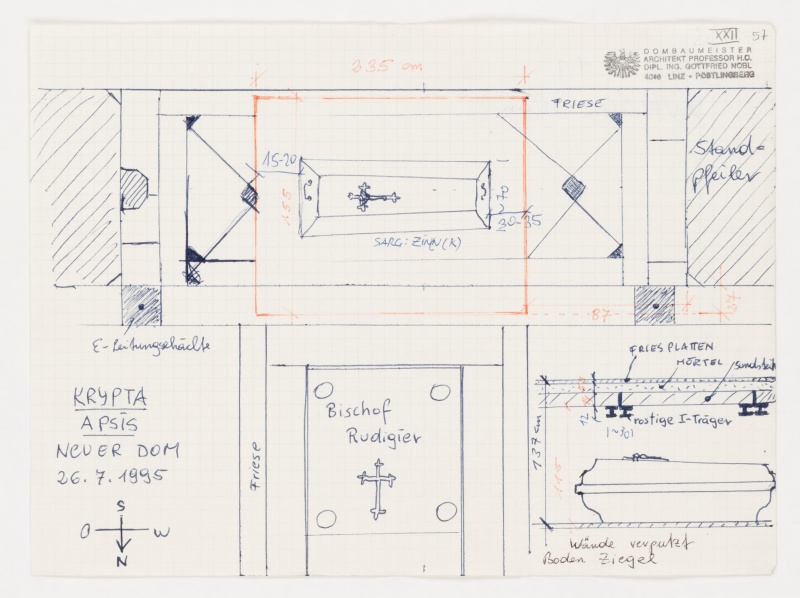 XXII 57
DOMBAUMEISTER
ARCHITEKT PROFESSOR H.C.
DIPL. ING. GOTTFRIED NOBL
4046 LINZ - PÖSTLINGBERG
235 cm
FRIESE
Stand=
pfeiler
15-20
155
70
30-35
SARG: ZINN (K)
87
137
E-Leitungschächte
KRYPTA
APSIS
NEUER DOM
26.7.1995
S
O W
N
Friese
Bischof
Rudigier
FRIESPLATTEN
MÖRTEL
12
rostige I-Träger
(~30)
137 cm
115
Wände verputzt
Boden Ziegel